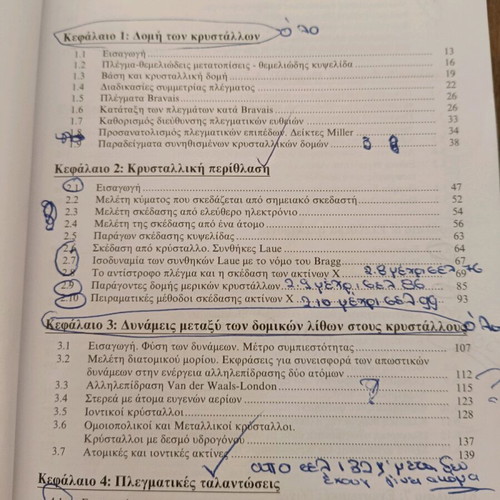 Κεφάλαιο 1: Δομή των κρυστάλλων όλο
1.1 Εισαγωγή 13
1.2 Πλέγμα-θεμελιώδεις μετατοπίσεις - θεμελιώδης κυψελίδα 16
1.3 Βάση και κρυσταλλική δομή 19
1.4 Διαδικασίες συμμετρίας πλέγματος 22
1.5 Πλέγματα Bravais 26
1.6 Κατάταξη των πλεγμάτων κατά Bravais 26
1.7 Καθορισμός διεύθυνσης πλεγματικών ευθειών 33
1.8 Προσανατολισμός πλεγματικών επιπέδων. Δείκτες Miller 34
1.9 Παραδείγματα συνηθισμένων κρυσταλλικών δομών 38
Κεφάλαιο 2: Κρυσταλλική περίθλαση
2.1 Εισαγωγή 47
2.2 Μελέτη κύματος που σκεδάζεται από σημειακό σκεδαστή 52
2.3 Μελέτη σκέδασης από ελεύθερο ηλεκτρόνιο 54
2.4 Μελέτη της σκέδασης από ένα άτομο 56
2.5 Παράγων σκέδασης κυψελίδας 63
2.6 Σκέδαση από κρύσταλλο. Συνθήκες Laue 64
2.7 Ισοδυναμία των συνθηκών Laue με το νόμο του Bragg 67
2.8 Το αντίστροφο πλέγμα και η σκέδαση των ακτίνων Χ 2.8 μέχρι σελ 76
2.9 Παράγοντες δομής μερικών κρυστάλλων 2.9 μέχρι σελ 86 85
2.10 Πειραματικές μέθοδοι σκέδασης ακτίνων Χ 2.10 μέχρι σελ 99 93
Κεφάλαιο 3: Δυνάμεις μεταξύ των δομικών λίθων στους κρυστάλλους όλο
3.1 Εισαγωγή. Φύση των δυνάμεων. Μέτρο συμπιεστότητας 107
3.2 Μελέτη διατομικού μορίου. Εκφράσεις για συνεισφορά των απωστικών
δυνάμεων στην ενέργεια αλληλεπίδρασης δύο ατόμων 112
3.3 Αλληλεπίδραση Van der Waals-London 115
3.4 Στερεά με άτομα ευγενών αερίων 123
3.5 Ιοντικοί κρύσταλλοι 128
3.6 Ομοιοπολικοί και Μεταλλικοί κρύσταλλοι.
Κρύσταλλοι με δεσμό υδρογόνου 137
3.7 Ατομικές και ιοντικές ακτίνες 139
από σελ 139 μετά δεν
έχουν γίνει ακόμα
Κεφάλαιο 4: Πλεγματικές ταλαντώσεις